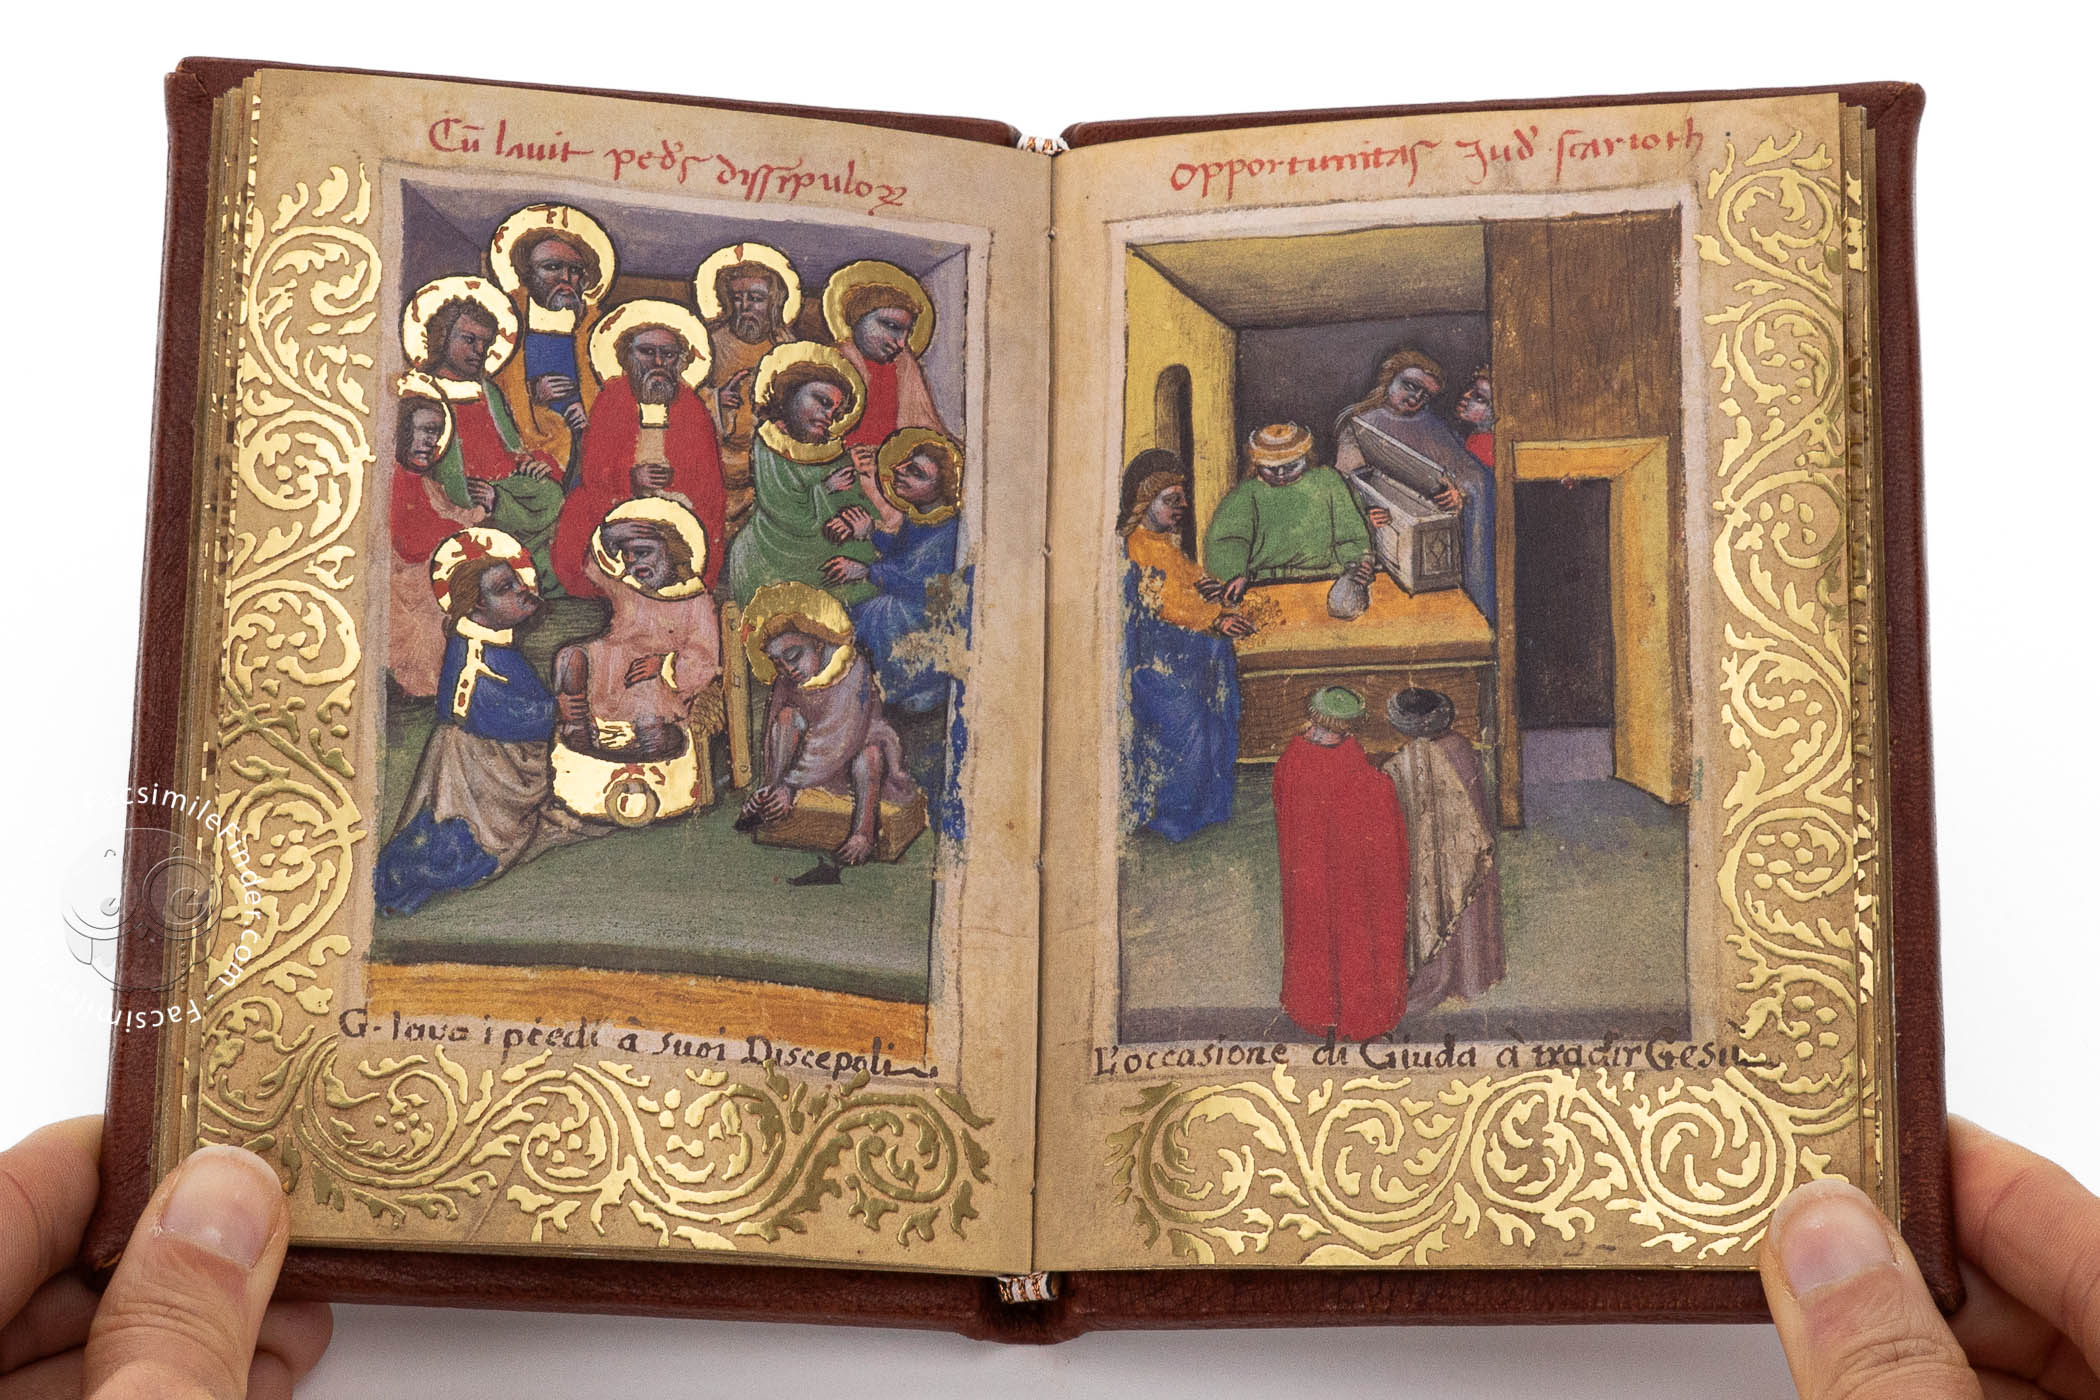 Cū lauit ped̉s dissipuloꝝ
G. lava i piedi à suoi Discepoli
opportunitas Jud̉ scarioth
L'occasione di Giuda à tradir Gesù
facsimileFinder.com - Facsimile